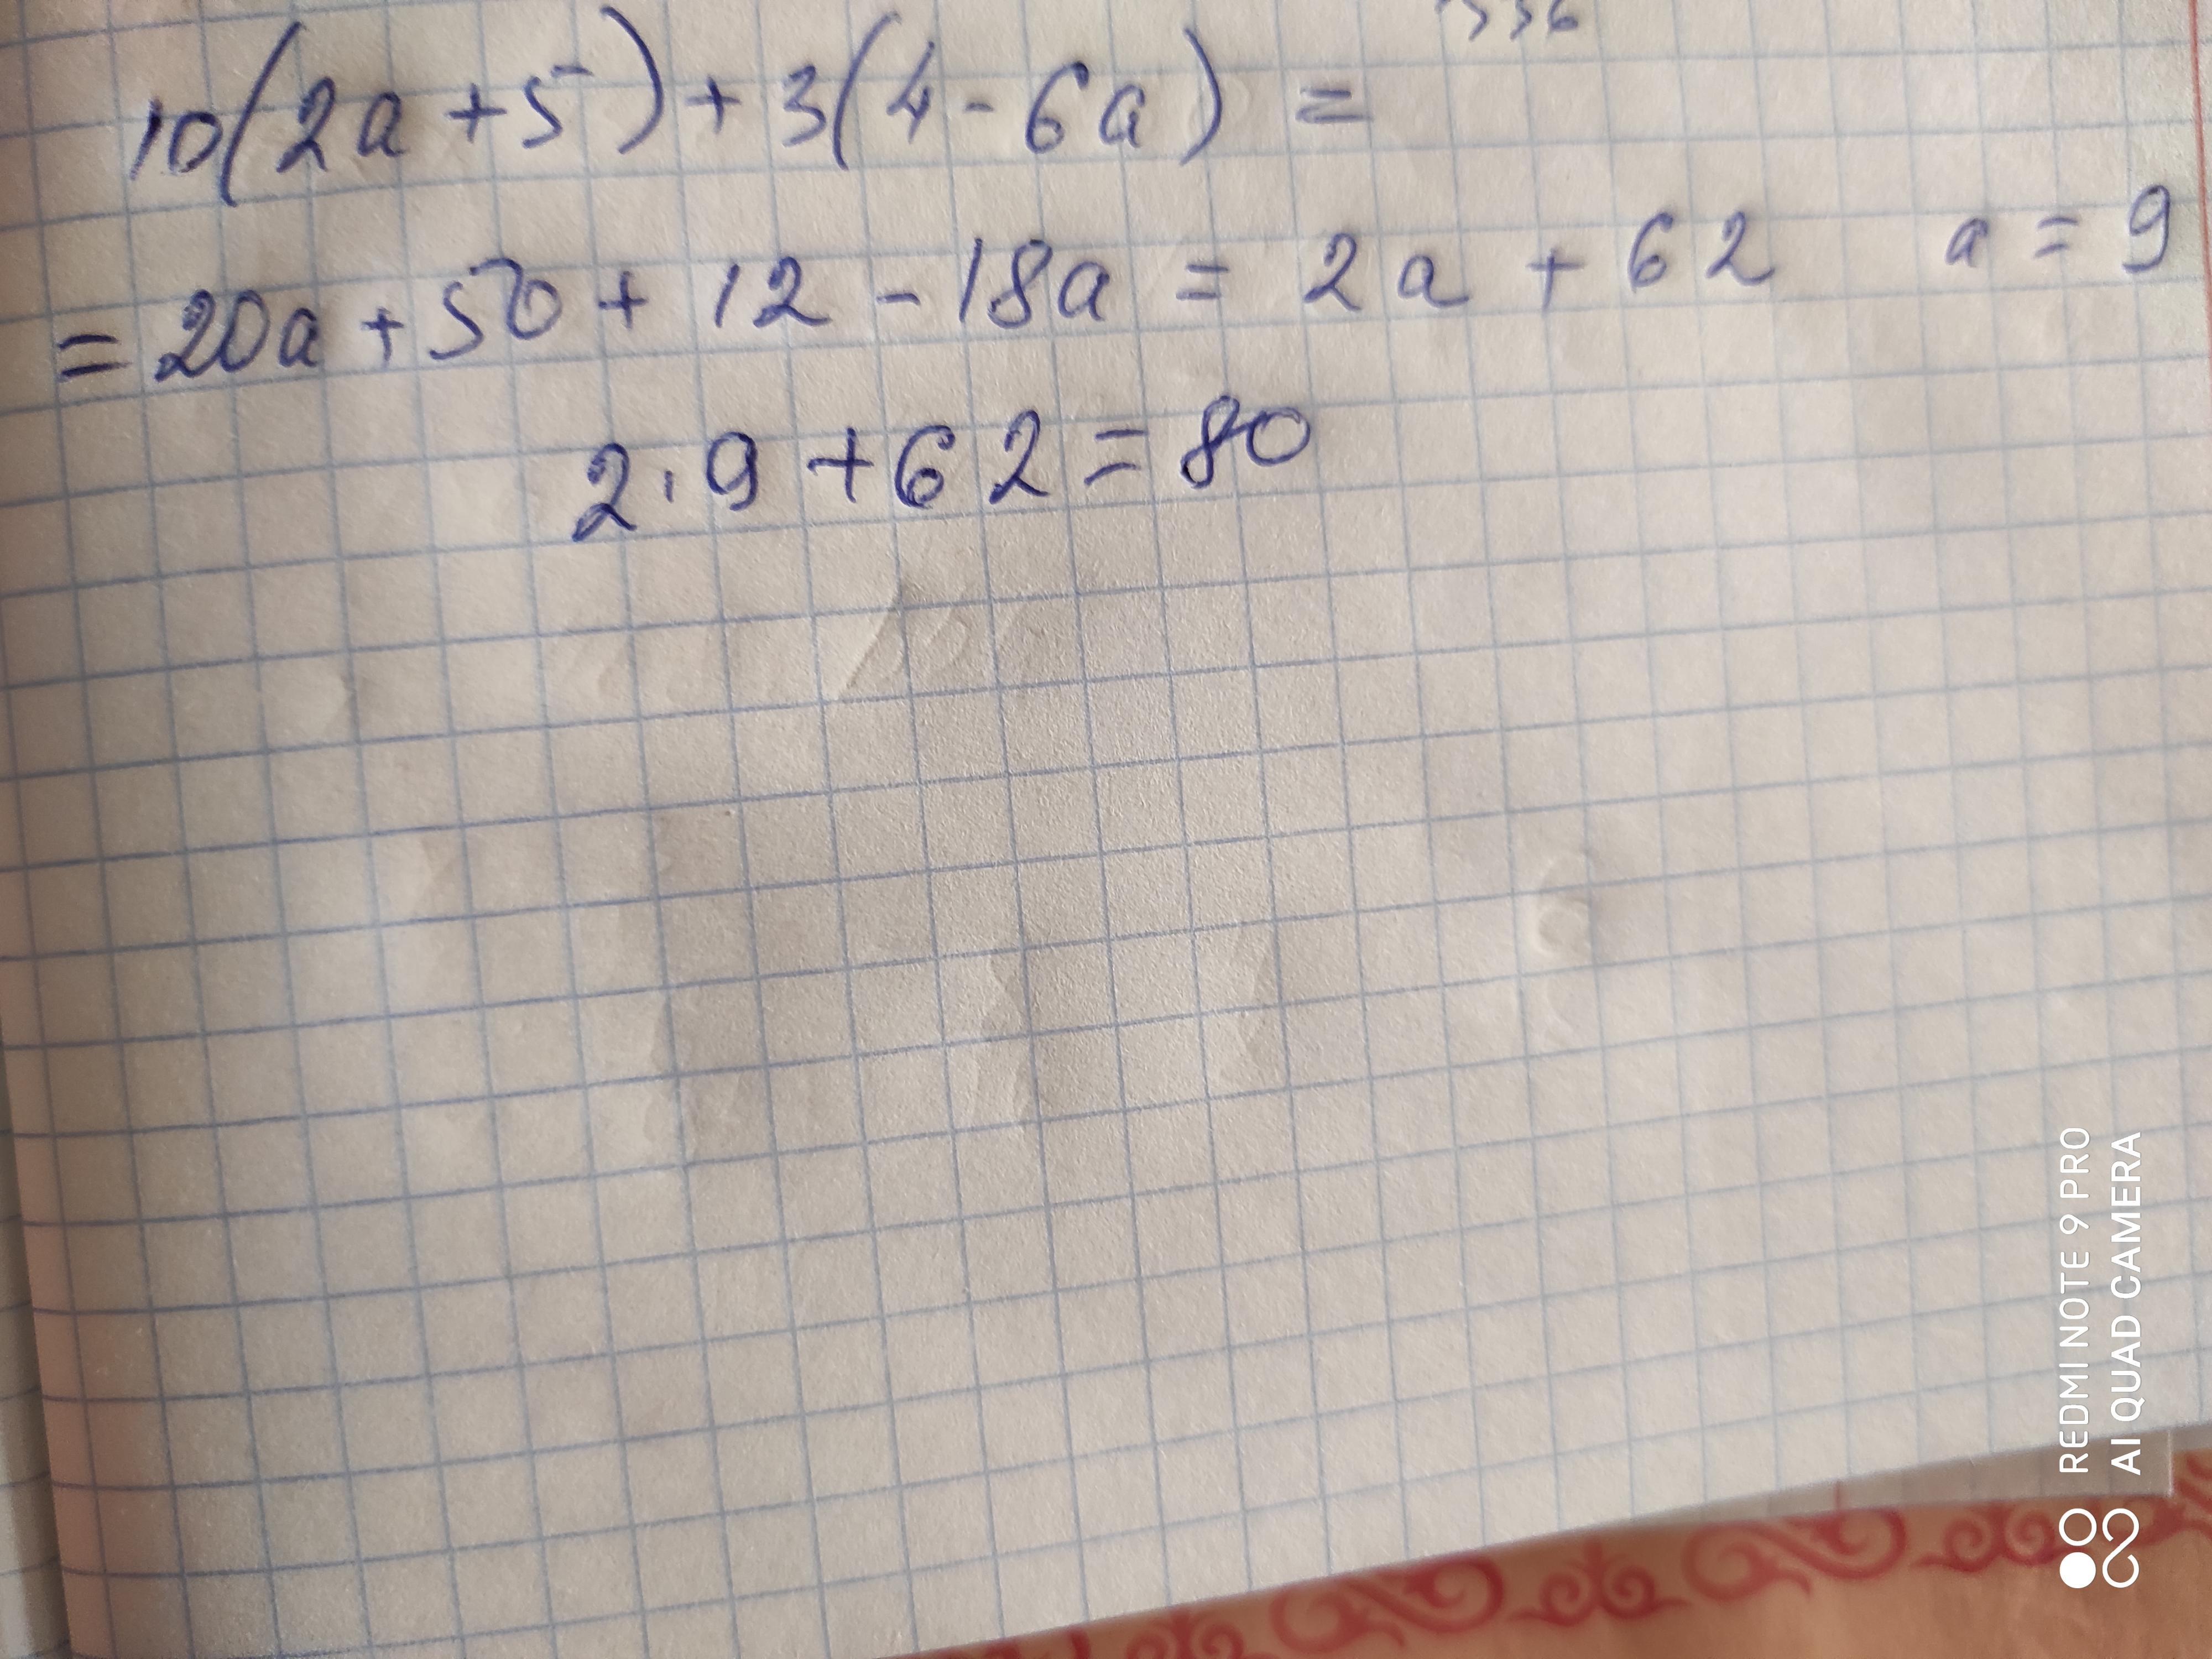 10(2a+5)+3(4-6a)=
=20a+50+12-18a=2a+62 a=9
2·9+62=80
REDMI NOTE 9 PRO
AI QUAD CAMERA